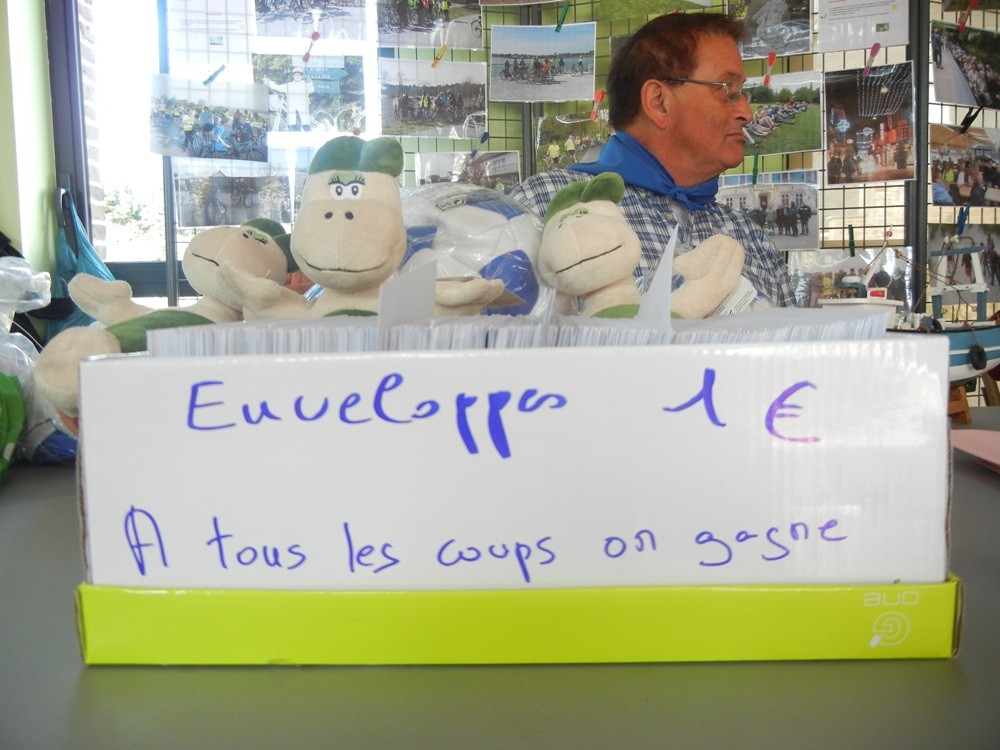 Enveloppes 1 €
A tous les coups on gagne